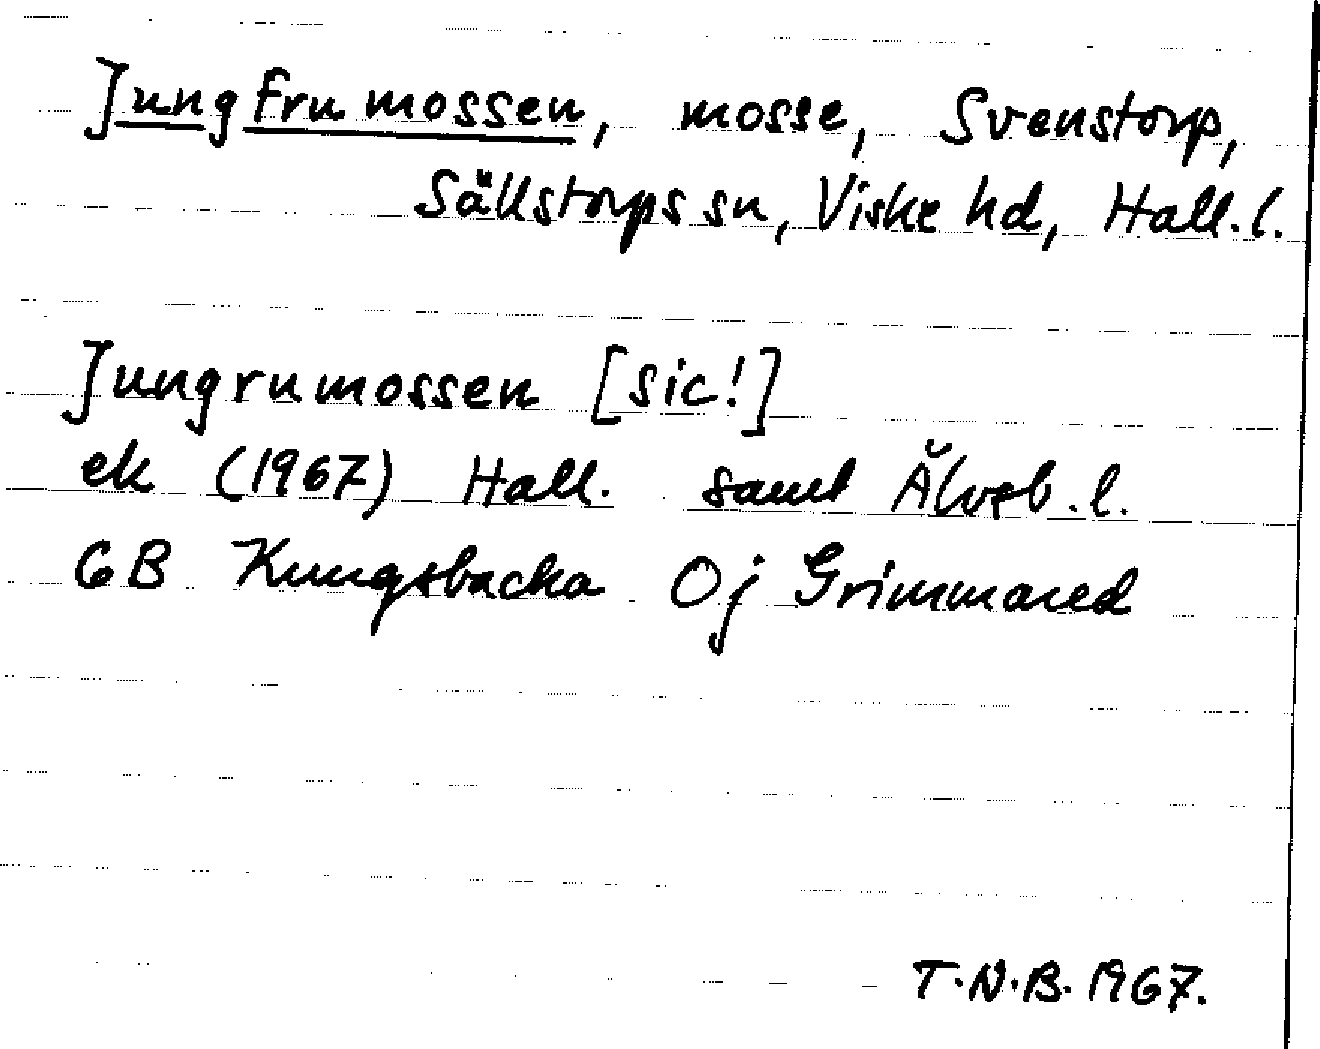 Jungfrumossen, mosse, Svenstorp,
Sällstorps sn, Viske hd, Hall. l.
Jungrumossen [sic!]
ek (1967) Hall. samt Älvsb. l.
6B Kungsbacka Oj Grimmared
T.N.B. 1967.